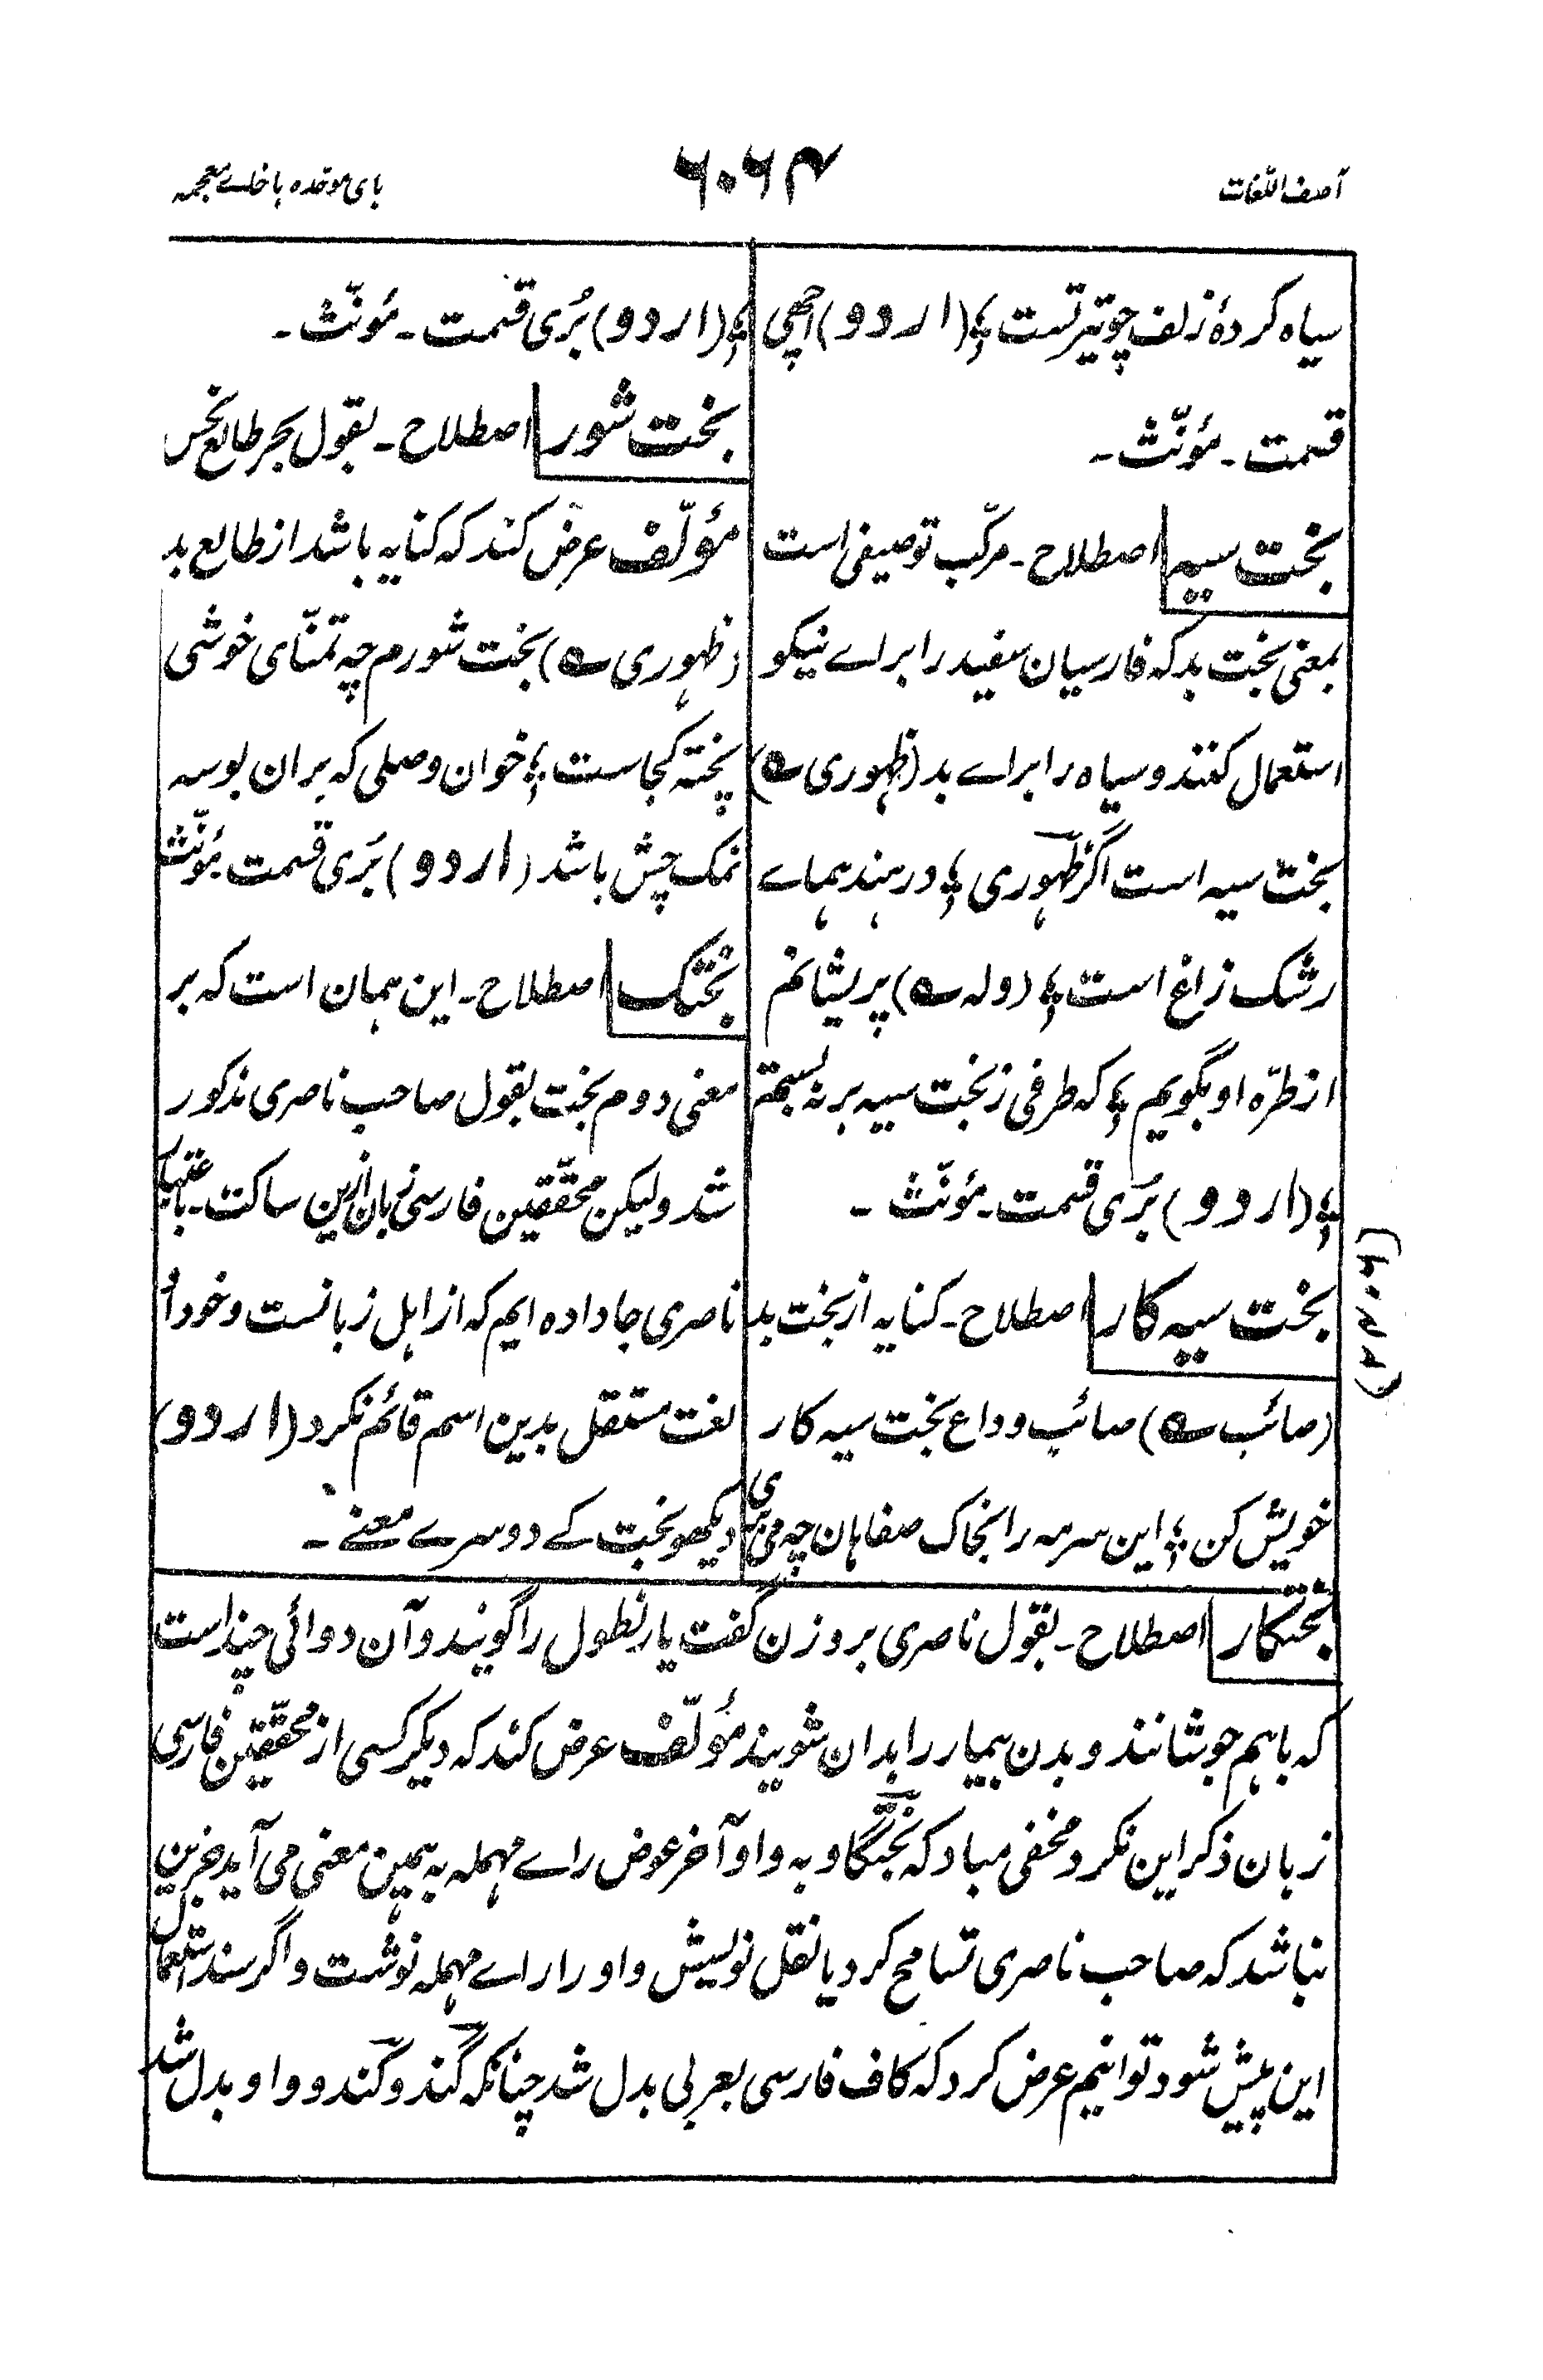 آصف اللّغات
۶۰۶۴
بای موحّدہ باخاے معجمہ
سیاہ کردۂ زلف چو تیر تست ؛ (اردو) اچھی
قسمت ۔ مؤنّث ۔
بخت سیہ اصطلاح ۔ مرکّب توصیفی است
بمعنی بخت بد کہ فارسیان سفید را برا ے نیکو
استعمال کنند و سیاہ را برا ے بد (ظہوری ؎)
بخت سیہ است اگر ظہوری ؛ در ہند ہماے
رشک زاغ است ؛ (ولہ ؎) پریشانم
از طرّہ او بگویم ؛ کہ طرفی ز بخت سیہ بر نہ بستم
؛ (اردو) بُری قسمت ۔ مؤنّث ۔
بخت سیہ کار اصطلاح ۔ کنایہ از بخت بد
(صائب ؎) صائب وداع بخت سیہ کار
خویش کن ؛ این سرمہ را بخاک صفاہان چہ می بری
؛ (اردو) بُری قسمت ۔ مؤنّث ۔
بخت شور اصطلاح ۔ بقول بحر طالع نحس
مؤلّف عرض کند کہ کنایہ باشد از طالع بد
(ظہوری ؎) بخت شورم چہ تمنّای خوشی
پختہ کجاست ؛ خوان وصلی کہ بران بوسہ
نمک چش باشد (اردو) بُری قسمت ۔ مؤنّث
بختک اصطلاح ۔ این ہمان است کہ بر
معنی دوم بخت بقول صاحب ناصری مذکور
شد ولیکن محقّقین فارسی زبان ازین ساکت ۔ باعتبار
ناصری جا دادہ ایم کہ از اہل زبانست و خود او
لغت مستقل بدین اسم قائم نکرد (اردو)
دیکھو بخت کے دوسرے معنے ۔
بختکار اصطلاح ۔ بقول ناصری بروزن گفت یار نطول را گویند و آن دوائی چند است
کہ باہم جوشانند و بدن بیمار را بدان شویند مؤلّف عرض کند کہ دیگر کسی از محقّقین فارسی
زبان ذکر این نکرد مخفی مباد کہ بختگاو بہ واو آخر عوض راے مہملہ بہ ہمین معنی می آید جزین
نباشد کہ صاحب ناصری تسامح کرد یا نقل نویسش واو را راے مہملہ نوشت و اگر سند استعمال
این پیش شود توانیم عرض کرد کہ کاف فارسی بعربی بدل شد چنانکہ گند و کند و واو بدل شد